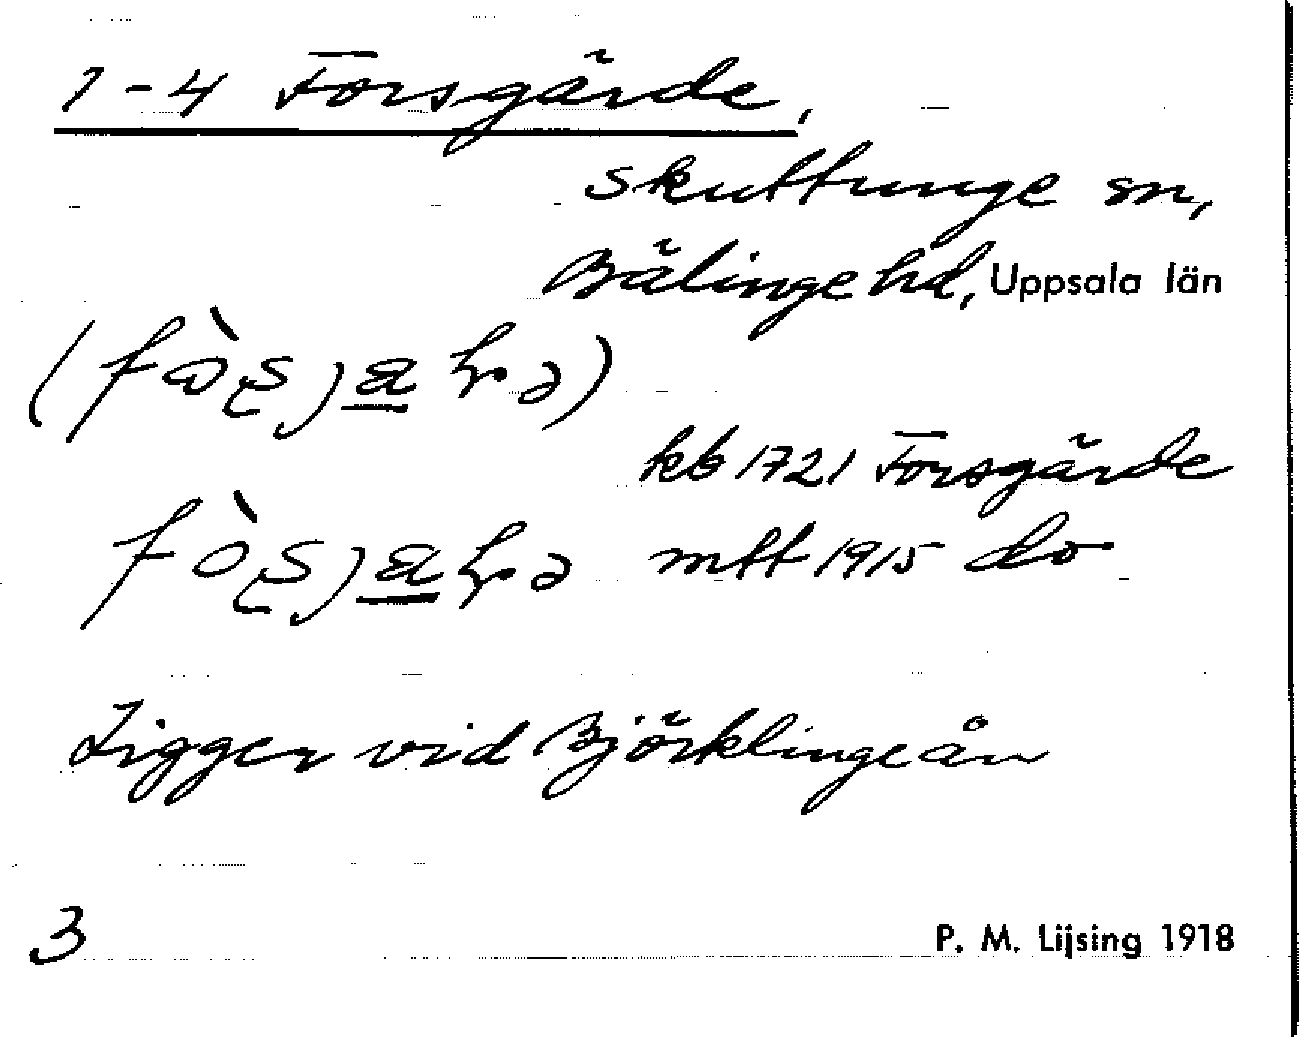 1-4 Forsgärde,
Skuttunge sn,
Bälinge hd, Uppsala län
kb 1721 Forsgärde
mtt 1915 do
Ligger vid Björklingeån
3
P. M. Lijsing 1918